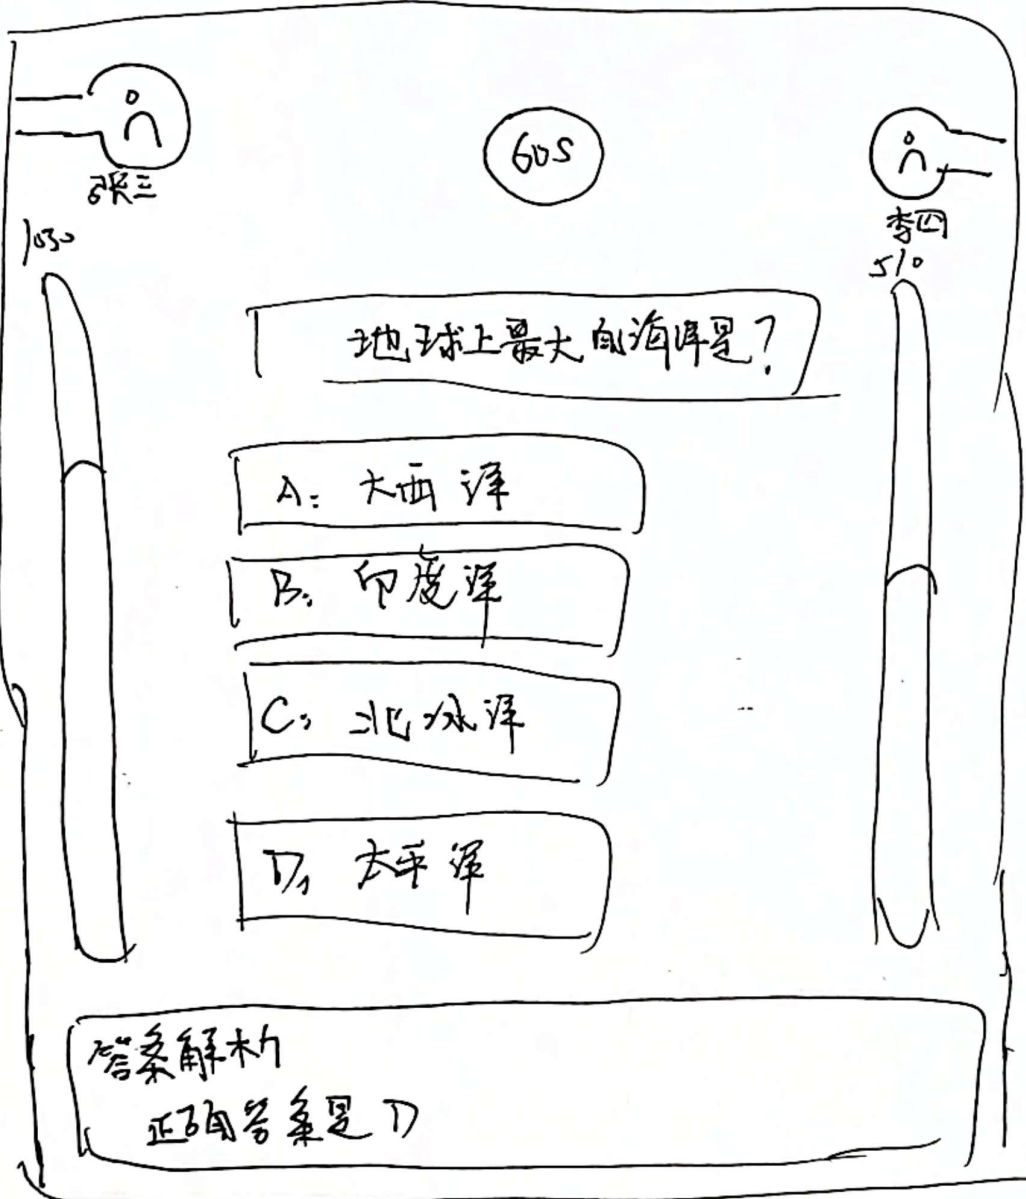 60S
张三
李四
1030
510
地球上最大的海洋是?
A: 大西洋
B: 印度洋
C: 北冰洋
D, 太平洋
答案解析
正确答案是D